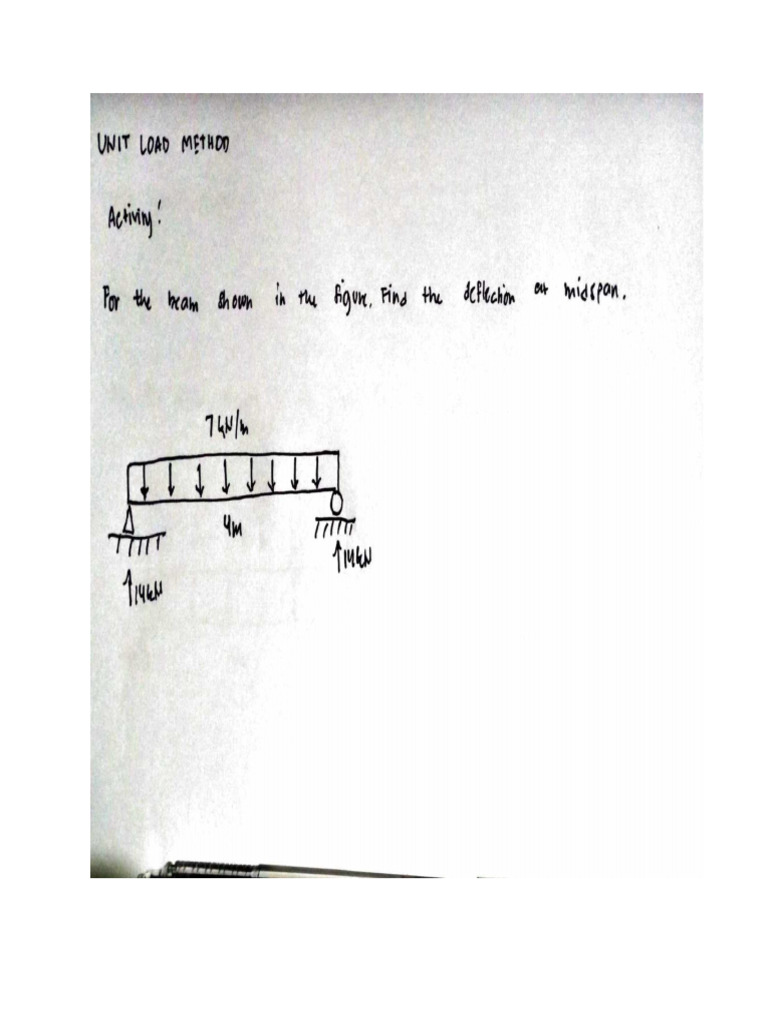 UNIT LOAD METHOD
Activity!
For the beam shown in the figure. Find the deflection at midspan.
7 kN/m
4m
14kN
14kN